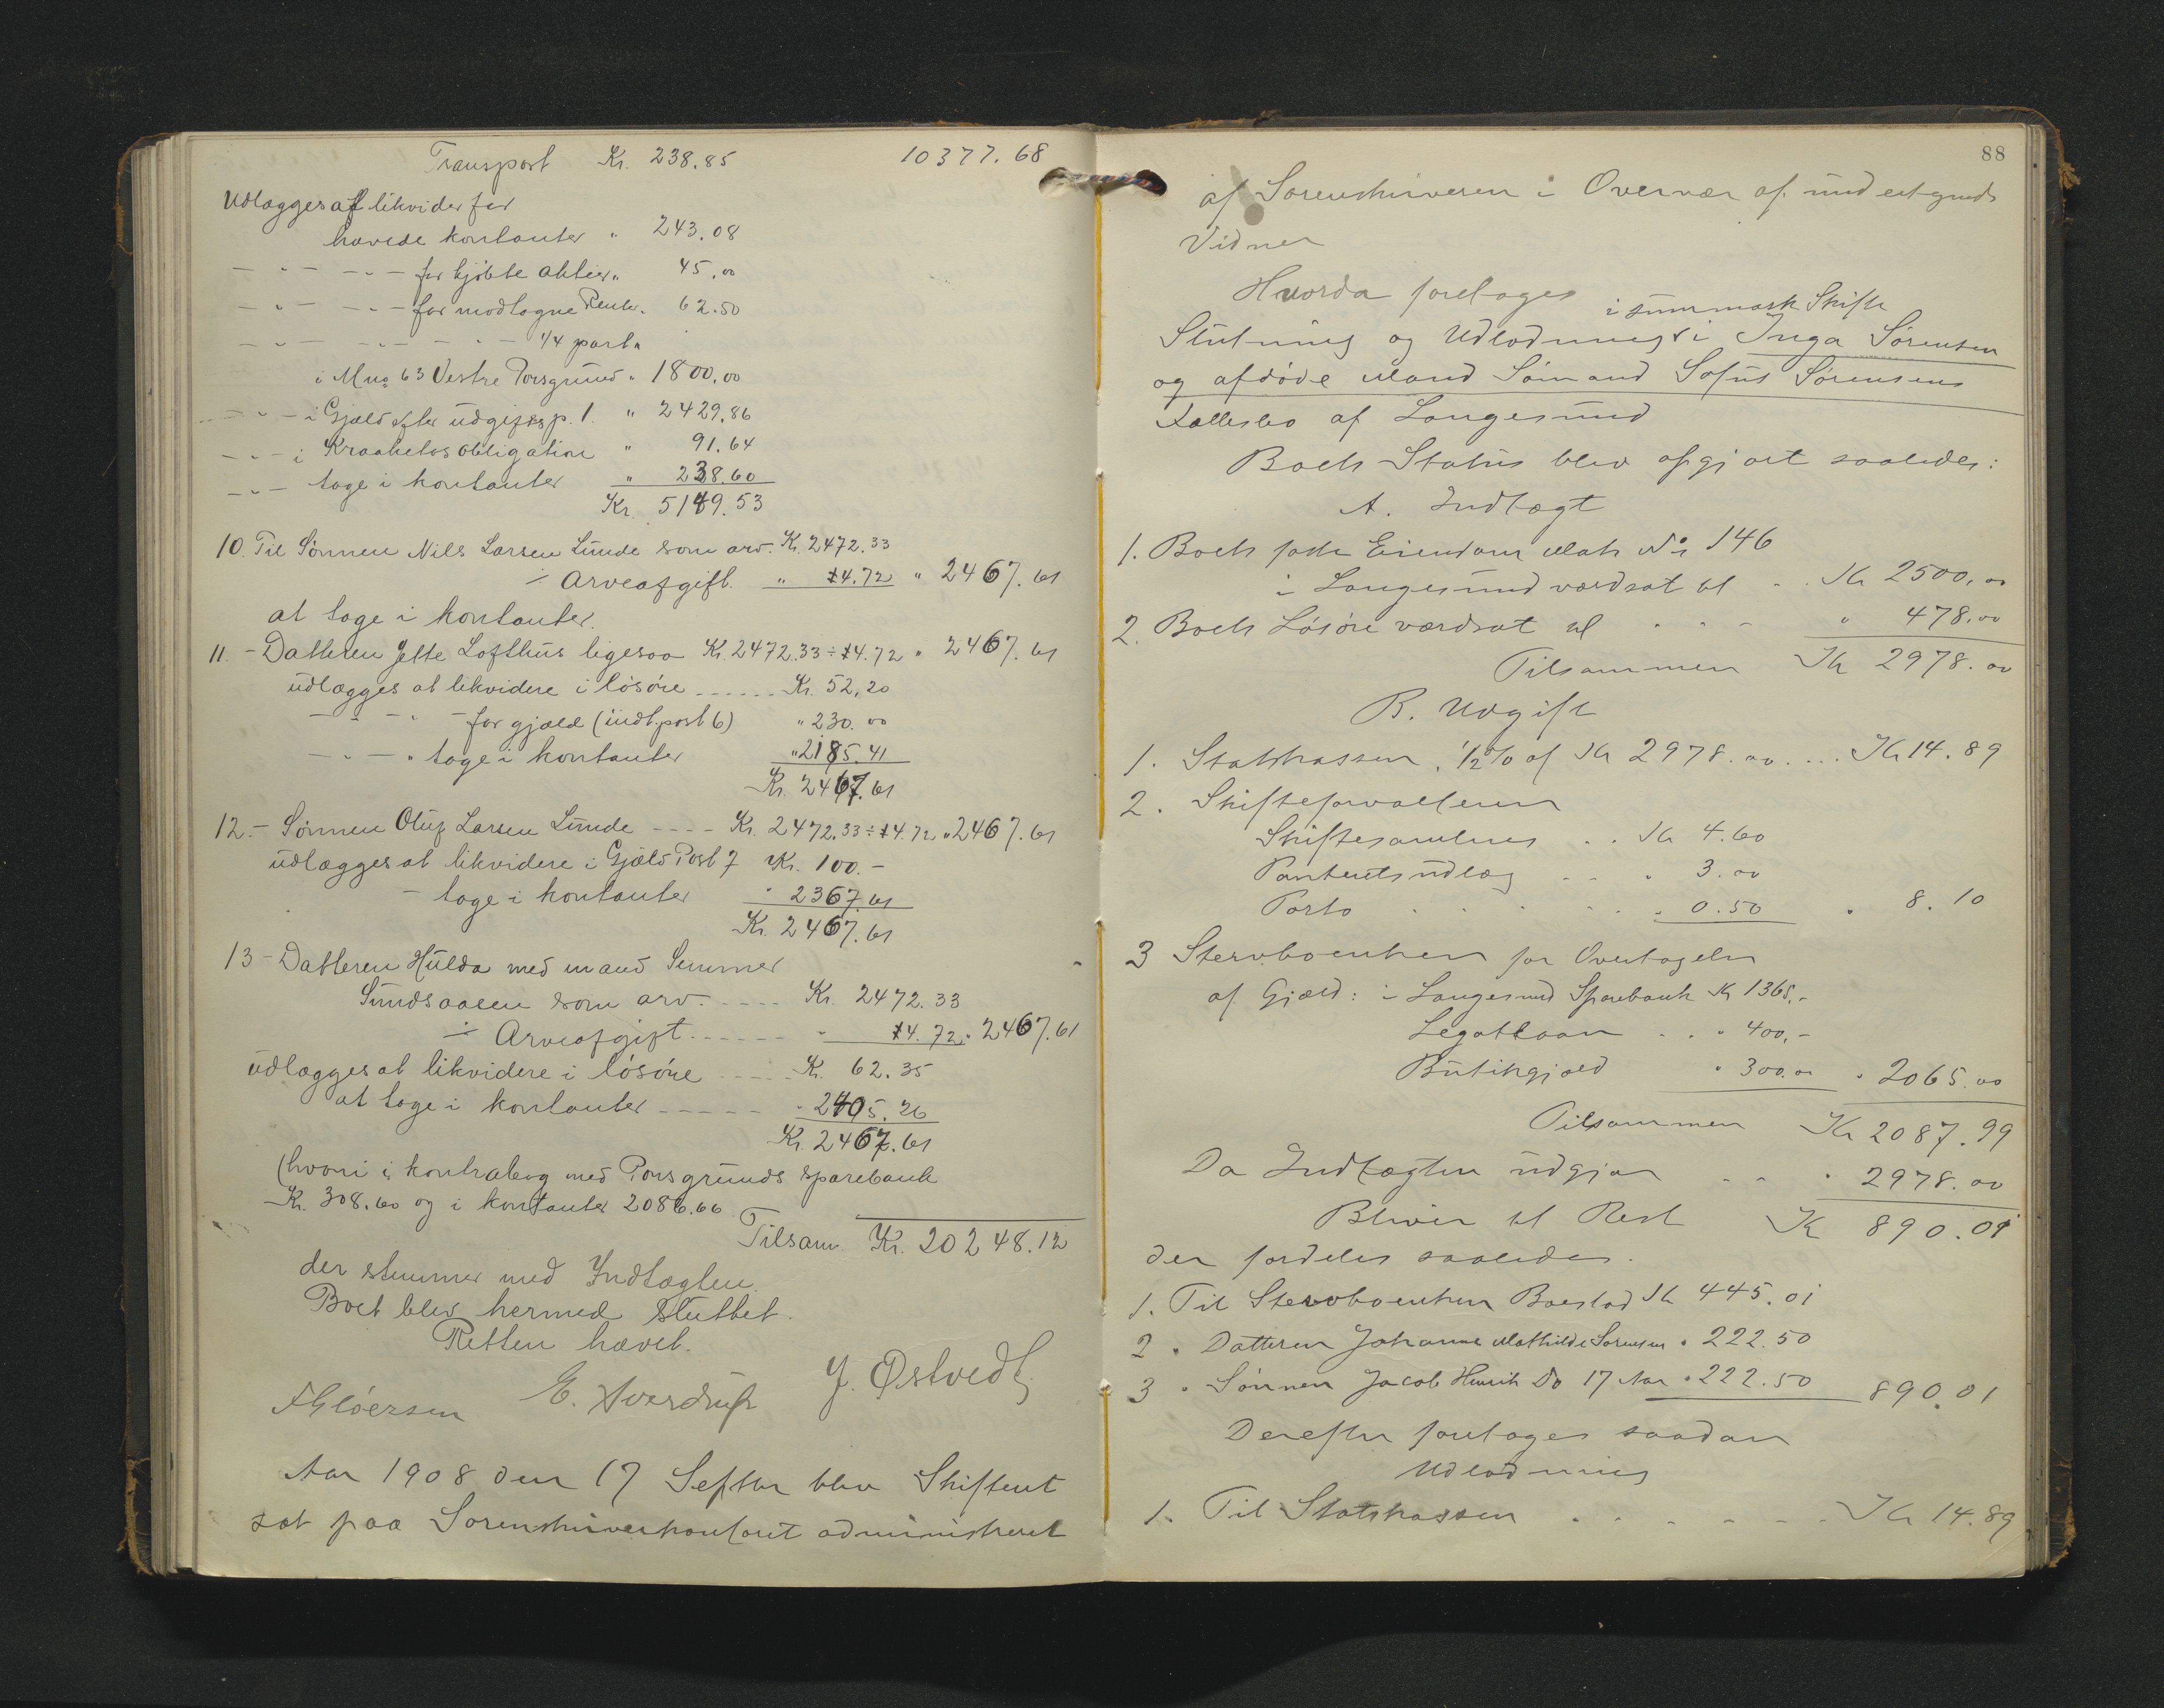 Transport Kr. 238.85 10377.68
Udlægges at likvider for
hævede kontanter " 243.08
— " — — " — for kjøbte aktier " 45.00
— " — — " — for modtagne Renter " 62.50
— " — — " — — " — 1/4 part "
i Mno 63 Vestre Porsgrund " 1800.00
— " — i Gjæld efter udgiftsp. 1. " 2429.86
— " — i Kraakelos obligation " 91.64
— " — tage i kontanter " 238.60
Kr. 5149.53
10. Til Sønnen Nils Larsen Lunde som arv. Kr. 2472.33
÷ Arveafgift. " 4.72 " 2467.61
at tage i kontanter.
11. — Datteren Jette Lofthus ligesaa Kr. 2472.33 ÷ 4.72 " 2467.61
udlægges at likvidere i løsøre ..... Kr. 52.20
— " — " — for gjæld (indt.post 6) " 230.00
— " — " tage i kontanter " 2185.41
Kr. 2467.61
12. — Sønnen Oluf Larsen Lunde ---- Kr. 2472.33 ÷ 4.72 " 2467.61
udlægges at likvidere i Gjæld Post 7 Kr. 100.-
— tage i kontanter " 2367.61
Kr. 2467.61
13 — Datteren Hulda med mand
Sundsaasen som arv. .... Kr. 2472.33
÷ Arveafgift ...... " 4.72 " 2467.61
udlægges at likvidere i løsøre ..... Kr. 62.35
at tage i kontanter ----- " 2405.26
Kr. 2467.61
(hvori i kontrabog med Porsgrunds sparebank
Kr. 308.60 og i kontanter 2086.66
Tilsam. Kr. 20248.12
der stemmer med Indtægten.
Boet blev hermed sluttet.
Retten hævet.
J. Østvedt
E. Sverdrup
Aar 1908 den 17 Septbr blev Skifteret
sat paa Sorenskriverkontoret administreret
88
af Sorenskriveren i Overvær af undertegnede
Vidner
Hvorda foretages
i summarisk Skifte
Slutning og Udlodning i Inga Sørensen
og afdøde Mand Sømand Sofus Sørensens
Fællesbo af Langesund
Boets Status blev opgjort saaledes:
A. Indtægt
1. Boets faste Eiendom Matr No 146
i Langesund værdsat til .. Kr 2500.00
2. Boets Løsøre værdsat til . . - " 478.00
Tilsammen Kr 2978.00
B. Udgift
1. Statskassen, 1/2% af Kr 2978.00 .... Kr 14.89
2. Skifteforvalteren
Skiftesamlings .. Kr 4.60
Panteretsudlæg . . " 3.00
Porto . . . . . . " 0.50 " 8.10
3 Stervboenken for Overtagelse
af Gjæld: i Langesund Sparebank Kr 1365,-
Legatlaan . . " 400,-
Butikgjæld " 300.00 " 2065.00
Tilsammen Kr 2087.99
Da Indtægten udgjør . . " 2978.00
Bliver til Rest Kr 890.01
der fordeles saaledes.
1. Til Stervboenken Boeslod Kr 445.01
2 " Datteren Johanne Mathilde Sørensen " 222.50
3 " Sønnen Jacob Henrik Do 17 Aar " 222.50 890.01
Derefter foretages saadan
Udlodning
1. Til Statskassen . . . - - - Kr 14.89